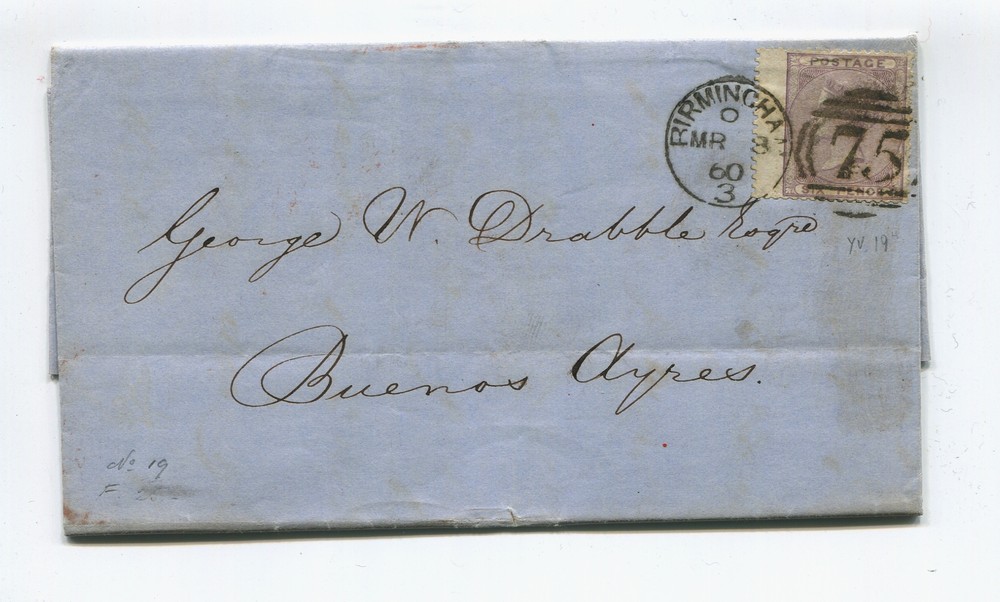 POSTAGE
BIRMINGHA
O
MR 8
60
3
75
SIX PENCE
George W. Drabble Esqre
YV. 19
Buenos Ayres.
No 19
F. 25